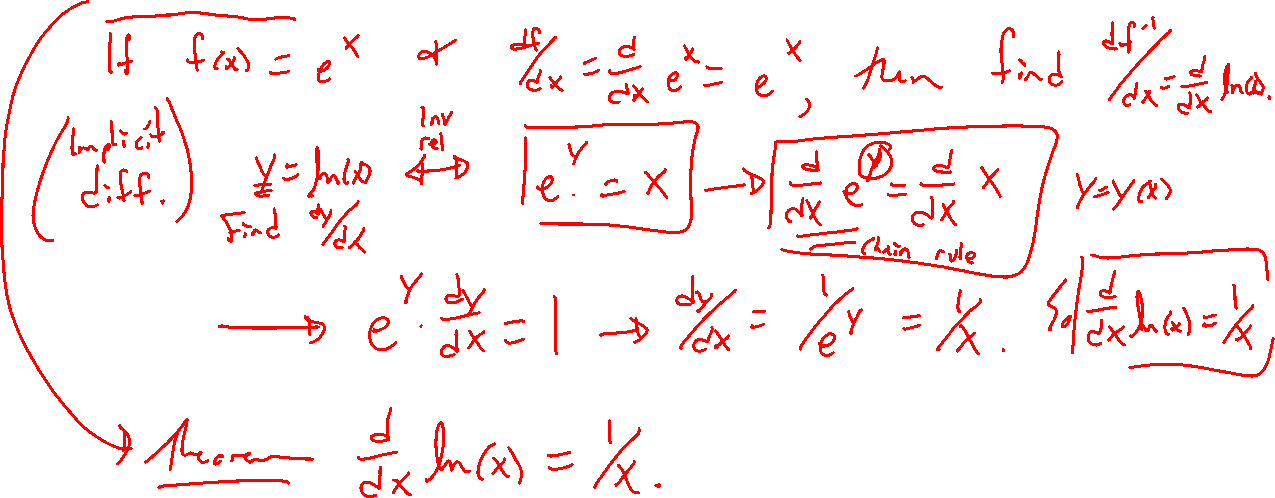 If f(x) = e^x & df/dx = d/dx e^x = e^x, then find df^-1/dx = d/dx ln(x).
(Implicit diff.) y = ln(x) Find dy/dx ↔ Inv rel e^y = x → d/dx e^y = d/dx x chain rule y = y(x)
→ e^y · dy/dx = 1 → dy/dx = 1/e^y = 1/x. So d/dx ln(x) = 1/x
→ Theorem d/dx ln(x) = 1/x.